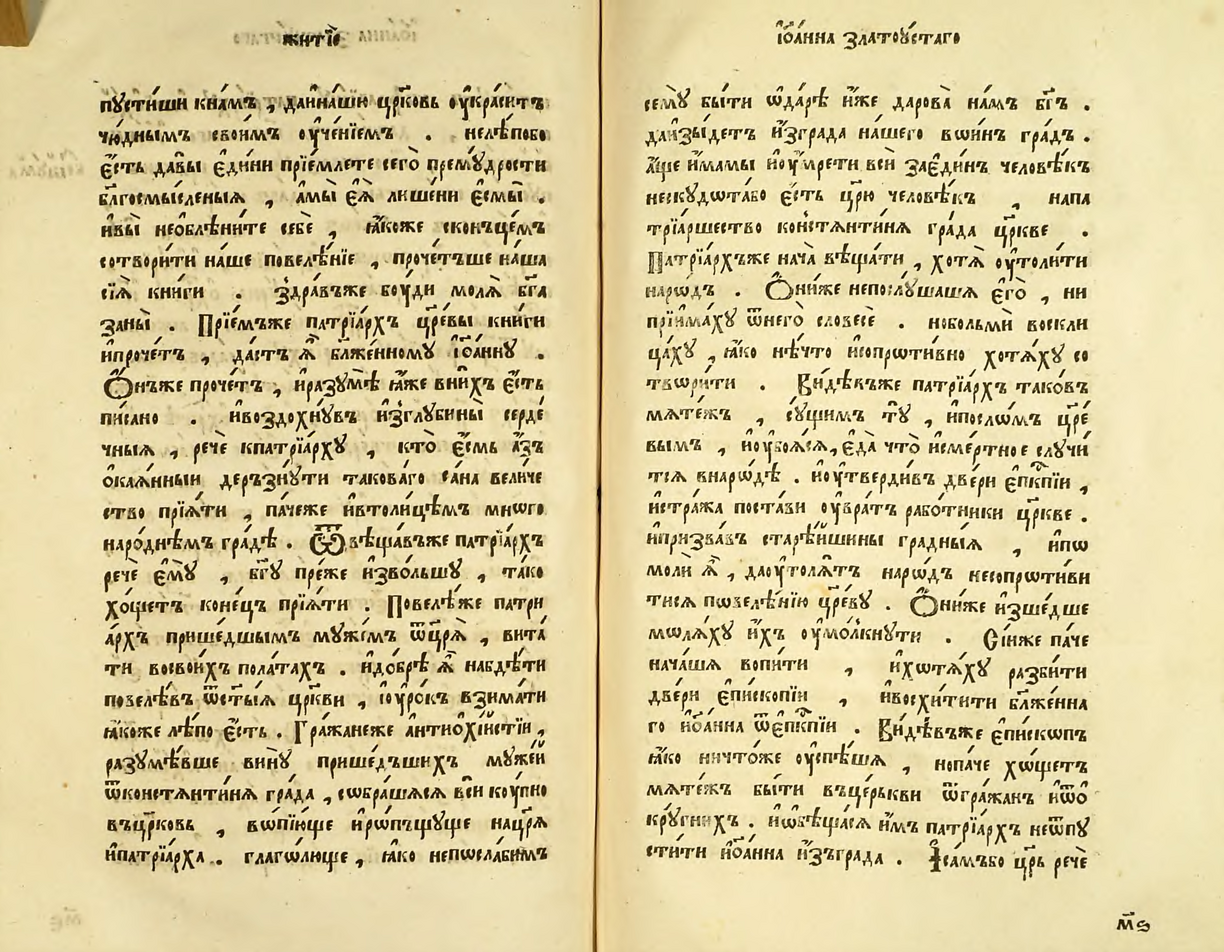 житїѐ
пꙋсти́ши кна́мъ , даина́шꙋ цр҃ковь оу҆кра́ситъ
чю́днымъ свои́мъ оу҆че́нїемъ . нелѣ́побо
є҆́сть да́вы є҆ди́ни прїе́млете сего̀ премꙋ́дрости
бл҃госмы́сленыѧ , а҆мы̀ є҆ѧ̀ лише́ни є҆смы̀ .
и҆вы̀ необлѣни́те себѐ , ꙗ҆́коже сконъце́мъ
сотвори́ти на́ше повелѣ́нїе , проче́тъше на́ша
сїѧ̀ кни́ги . Здра́въже бо́уди молѧ̀ бг҃а
за́ны̀ . Прїе́мъже патрїа́рхъ цр҃е́вы кни́ги
и҆проче́тъ , да́стъ ѧ҆̀ бл҃же́нномꙋ і҆ѡа́ннꙋ .
Ѻ҆́нъже проче́тъ , и҆разꙋмѣ̀ ꙗ҆́же вни́хъ є҆́сть
пи́сано . и҆воздохнꙋ́въ и҆зглꙋбины̀ серде́
чныѧ , речѐ кпатрїа́рхꙋ , кто̀ є҆́смь а҆́зъ
ѻ҆каѧ́нныи дерзнꙋ́ти такова́го са́на величе
ство прїѧ́ти , па́чеже и҆втоли́цѣмъ мно́го
наро́днѣмъ гра́дѣ . Ѿвѣща́въже патрїа́рхъ
речѐ є҆мꙋ̀ , бг҃ꙋ пре́же и҆зво́льшꙋ , та́ко
хо́щетъ коне́цъ прїѧ́ти . Повелѣ́же патри
а́рхъ прише́дшымъ мꙋже́мъ ѿцр҃ѧ̀ , вита́
ти восвои́хъ пола́тахъ . и҆до́брѣ ѧ҆̀ набдѣ́ти
повелѣ́въ ѿст҃ы́ѧ цр҃кви , і҆оу҆ро́къ взима́ти
ꙗ҆́коже лѣ́по є҆́сть . Гра́жанеже а҆нтиохі́йстїи ,
разꙋмѣ́вше винꙋ̀ прише́дъшихъ мꙋже́й
ѿконстѧнти́нѧ гра́да , сѡбра́шасѧ всѝ кꙋ́пно
въцр҃ковь , вопїю́ще и҆ро́пъщꙋще нацр҃ѧ̀
и҆патрїа́рха . глаго́люще , ꙗ҆́ко непосла́бимъ
і҆ѡа́нна златоꙋ́стаго
семꙋ̀ бы́ти ѡ҆да́рѣ и҆́же дарова̀ на́мъ бг҃ъ .
даи҆зы́детъ и҆згра́да на́шего вѡи́нъ гра́дъ .
А҆́ще и҆́мамы и҆оу҆мре́ти всѝ заеди́нъ человѣ́къ
нескꙋдѡта́бо є҆́сть цр҃ю̀ человѣ́къ , напа
трїа́ршество констѧнти́нѧ гра́да цр҃кве .
Патрїа́рхъже нача̀ вѣща́ти , хотѧ̀ оу҆толи́ти
наро́дъ . Ѻ҆ни́же непослꙋ́шашѧ є҆гѡ̀ , ни
прїима́хꙋ ѿнего̀ словесѐ . нобо́льми воскли
ца́хꙋ , ꙗ҆́ко нѣ́что и҆сопрѡти́вно хотѧ́хꙋ со
твѡри́ти . Ви́дѣвъже патрїа́рхъ тако́въ
мѧте́жъ , сꙋ́щимъ тꙋ̀ , и҆посло́мъ цр҃е
вы́мъ , и҆оу҆боѧ́сѧ, є҆да̀ что̀ и҆сме́ртное слꙋчи́
тсѧ внаро́дѣ . и҆оу҆тверди́въ две́ри є҆пⷭ҇кпїи ,
и҆стра́жа поста́ви оу҆вра́тъ рабо́тники цр҃кве .
и҆призва́въ старѣ́йшины гра́дныѧ , и҆пѡ
моли́ ѧ҆̀ , даоу҆толѧ́тъ наро́дъ несопрѡти́ви
тисѧ пѡвелѣ́нїю цр҃е́вꙋ . Ѻ҆ни́же и҆зше́дше
молѧ́хꙋ и҆́хъ оу҆мо́лкнꙋти . Сїи́же па́че
нача́шѧ вопи́ти , и҆хотѧ́хꙋ разби́ти
две́ри є҆писко́пїи , и҆восхи́тити бл҃же́нна
го и҆ѡа́нна ѿє҆пⷭ҇кпїи . Ви́дѣвъже є҆пи́скѡпъ
ꙗ҆́ко ничто́же оу҆спѣ́шѧ , нопа́че хѡ́щетъ
мѧте́жъ бы́ти въце́рькви ѿгра́жанъ и҆ѿо
крꙋ́гнихъ . и҆ѡбѣща́сѧ и҆̀мъ патрїа́рхъ неѿпꙋ
сти́ти и҆ѡа́нна и҆зъгра́да . І҆са́мъбо цр҃ь речѐ
м҃ѕ